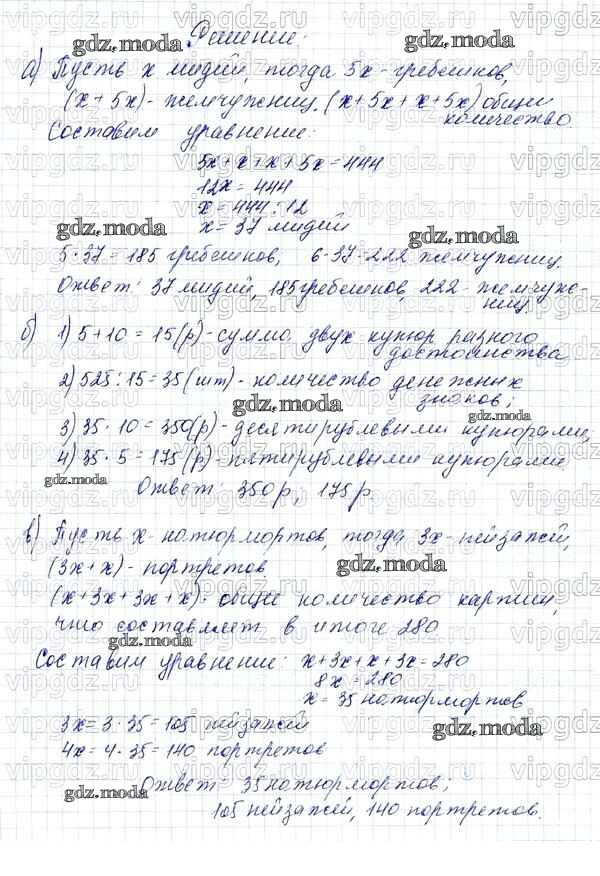 Решение:
а) Пусть x мидий, тогда 5x - гребешков,
(x + 5x) - жемчужниц. (x + 5x + x + 5x) общее
количество.
Составим уравнение:
5x + x + x + 5x = 444
12x = 444
x = 444 : 12
x = 37 мидий
5 · 37 = 185 гребешков, 6 · 37 - 222 жемчужниц.
Ответ: 37 мидий, 185 гребешков, 222 - жемчуж-
ниц.
б) 1) 5 + 10 = 15 (р) - сумма двух купюр разного
достоинства
2) 525 : 15 = 35 (шт) - количество денежных
знаков;
3) 35 · 10 = 350 (р) - десятирублевыми купюрами;
4) 35 · 5 = 175 (р) - пятирублевыми купюрами.
Ответ: 350 р, 175 р.
в) Пусть x - натюрмортов, тогда 3x - пейзажей,
(3x + x) - портретов
(x + 3x + 3x + x) - общее количество картин,
что составляет в итоге 280
Составим уравнение: x + 3x + x + 3x = 280
8x = 280
x = 35 натюрмортов
3x = 3 · 35 = 105 пейзажей
4x = 4 · 35 = 140 портретов
Ответ: 35 натюрмортов;
105 пейзажей, 140 портретов.
gdz.moda
vipgdz.ru